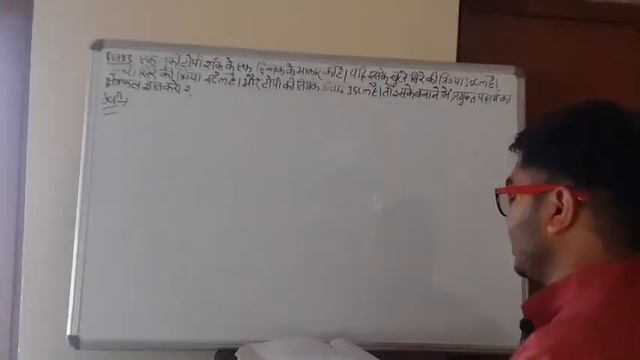 एक टोपी शंकु के एक छिन्नक के आकार की है। यदि इसके खुले सिरे की त्रिज्या 10cm है।
सिरे की त्रिज्या 4cm है। और टोपी की तिर्यक ऊंचाई 15cm है। तो इसके बनाने में प्रयुक्त पदार्थ का
क्षेत्रफल ज्ञात करो ?